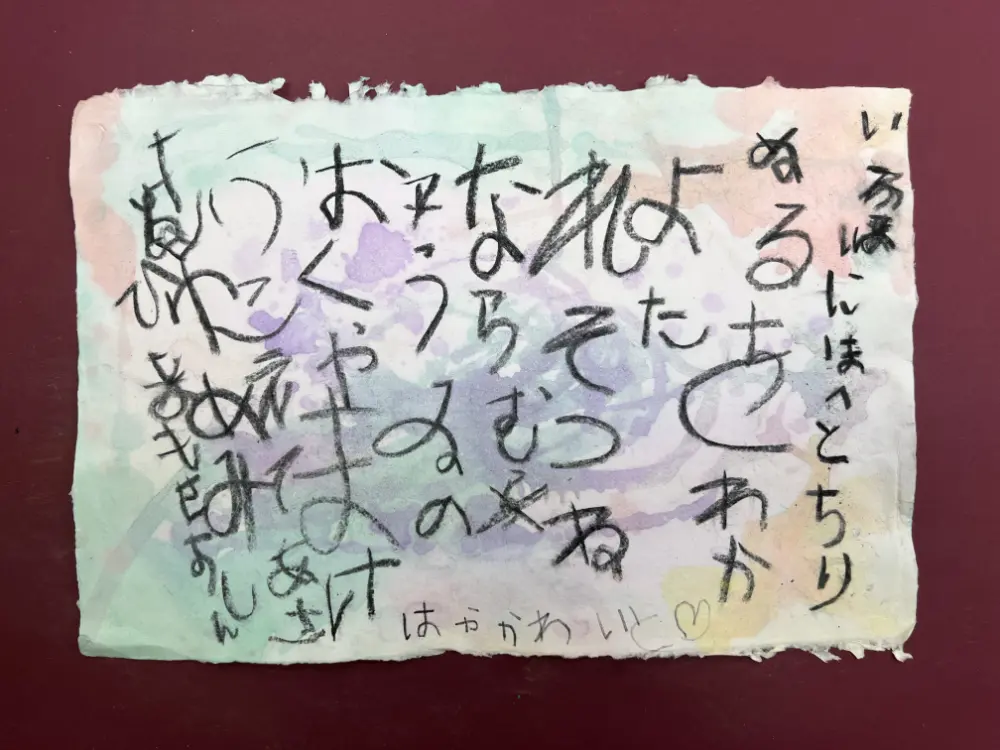 いろはにほへとちり
ぬるをわか
よた
れそつね
ならむ
うゐの
おくやまけ
ふこえてあさ
ゆめみし
はやかわいと♡